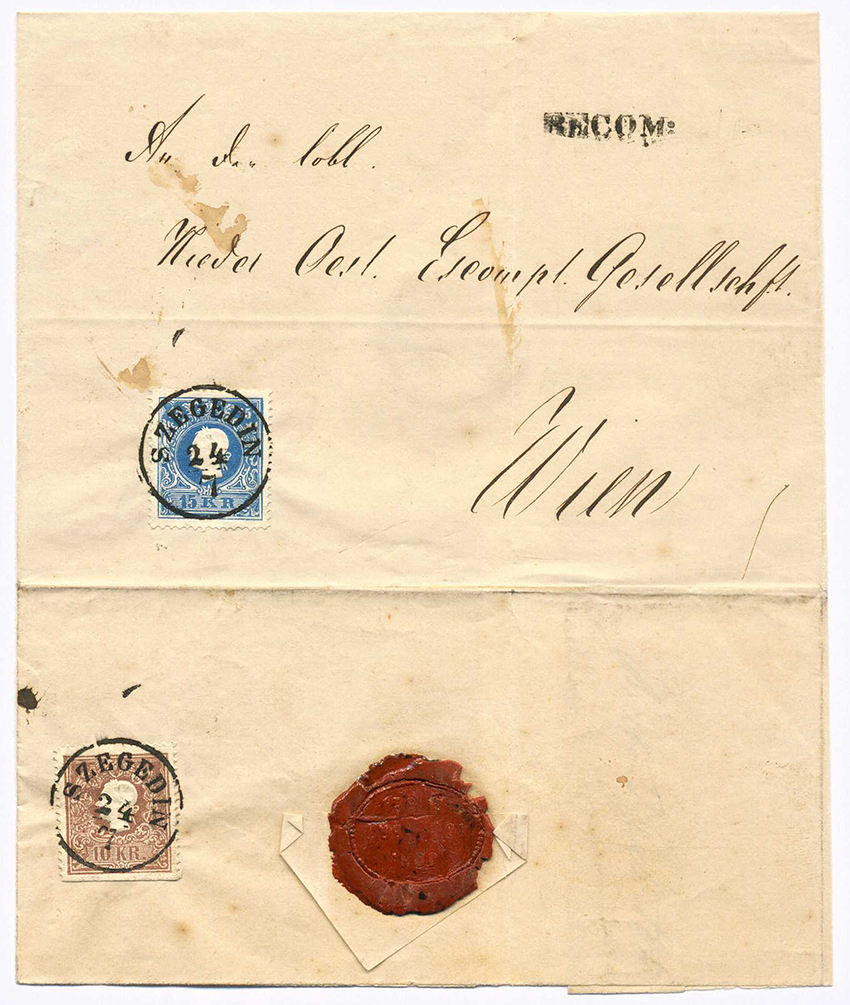 RECOM:
An die lobl.
Nieder Oest. Escompt. Gesellschft.
Wien
SZEGEDIN
24
7
15 KR
SZEGEDIN
24
7
10 KR.